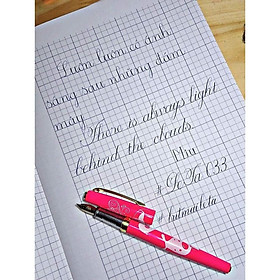 Luôn luôn có ánh
sáng sau những đám
mây
There is always light
behind the clouds.
Mu
# LeTa 033
butmaileta